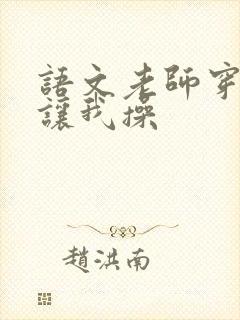 語文老師穿
讓我操
趙洪南